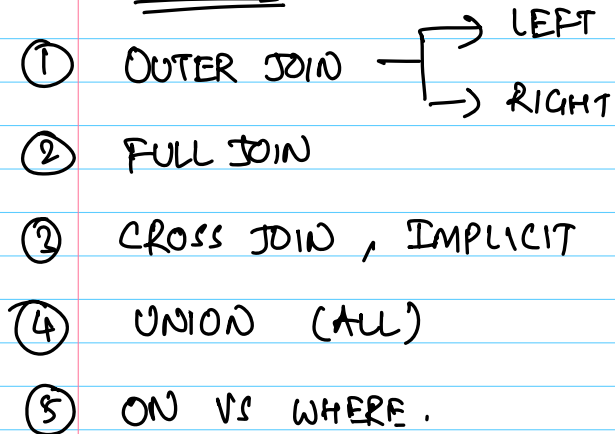 ① OUTER JOIN → LEFT
→ RIGHT
② FULL JOIN
③ CROSS JOIN , IMPLICIT
④ UNION (ALL)
⑤ ON VS WHERE.